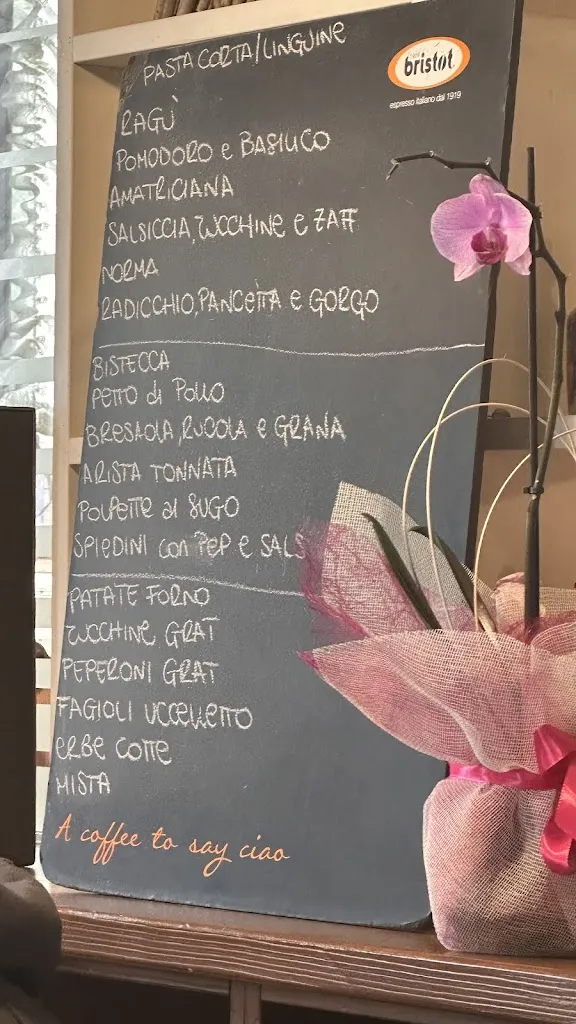 PASTA CORTA/LINGUINE
bristot
espresso italiano dal 1919
RAGÙ
POMODORO e BASILICO
AMATRICIANA
SALSICCIA, ZUCCHINE e ZAFF
NORMA
RADICCHIO, PANCETTA e GORGO
BISTECCA
PETTO di POLLO
BRESAOLA, RUCOLA e GRANA
ARISTA TONNATA
POLPETTE al SUGO
SPIEDINI con PEP e SALS
PATATE FORNO
ZUCCHINE GRAT
PEPERONI GRAT
FAGIOLI UCCELLETTO
ERBE COTTE
MISTA
A coffee to say ciao